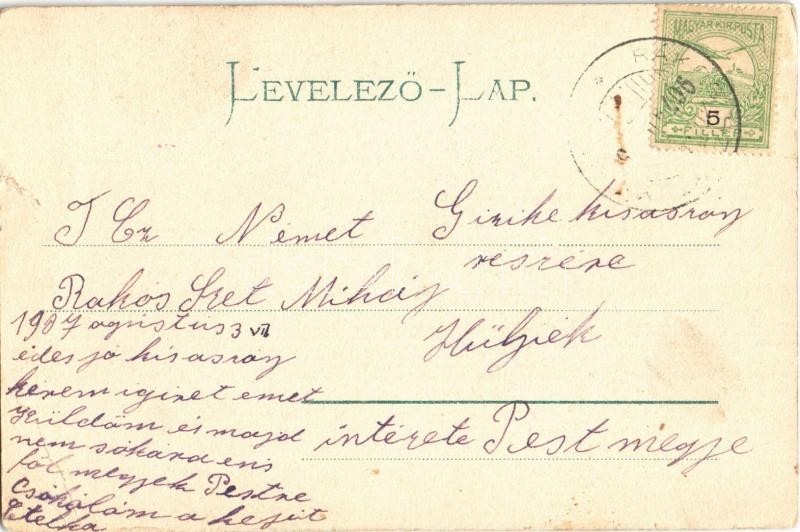 LEVELEZŐ-LAP.
MAGYAR KIR. POSTA
5
FILLÉR
RÁK
T Cz Német Gizike kisaszony
részére
Rakós Szet Mihály
Hülyiek
intérete Pest megje
1907 agustus 3 VII
édes jó kisasszony
kérem igiret emet
Küldöm és majd
nem sokára én is
föl megyek Pestre
Csókolom a kezit
Etelka